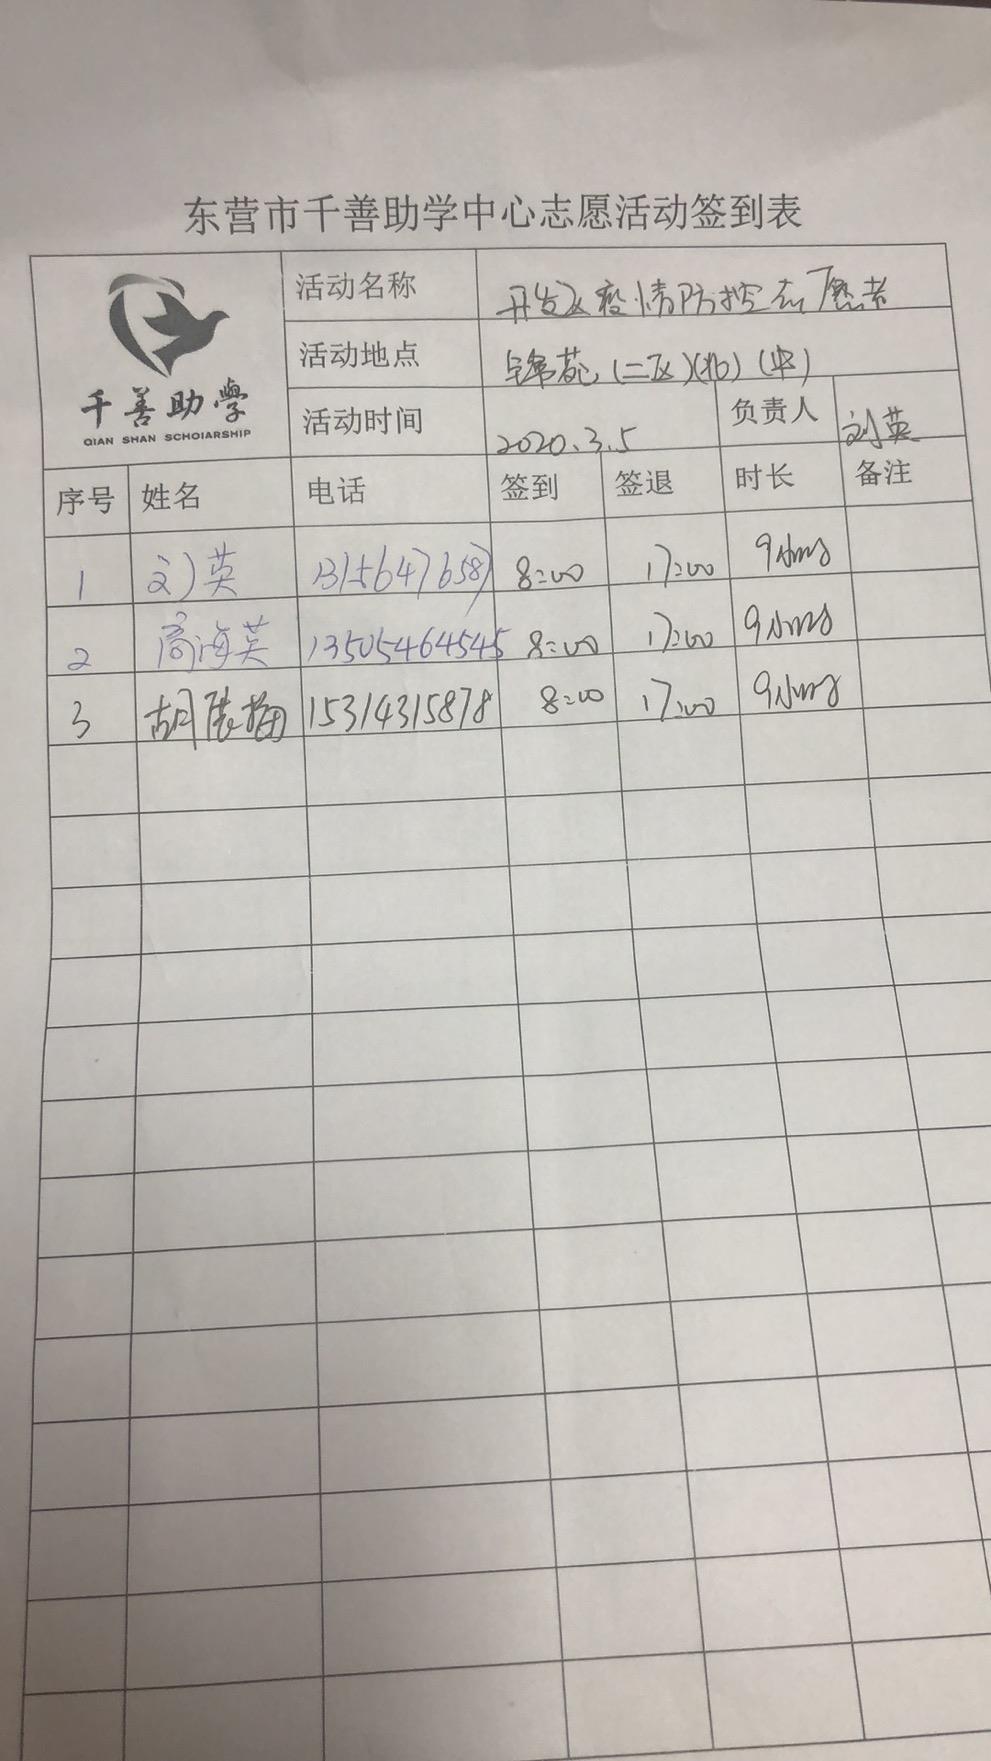 东营市千善助学中心志愿活动签到表
千善助學
QIAN SHAN SCHOIARSHIP
活动名称 开发区疫情防控志愿者
活动地点 锦苑(二区)(北)(中)
活动时间 2020.3.5 负责人 刘英
序号 姓名 电话 签到 签退 时长 备注
1 刘英 13156476587 8:00 17:00 9小时
2 商海英 13505464545 8:00 17:00 9小时
3 胡 15314315878 8:00 17:00 9小时